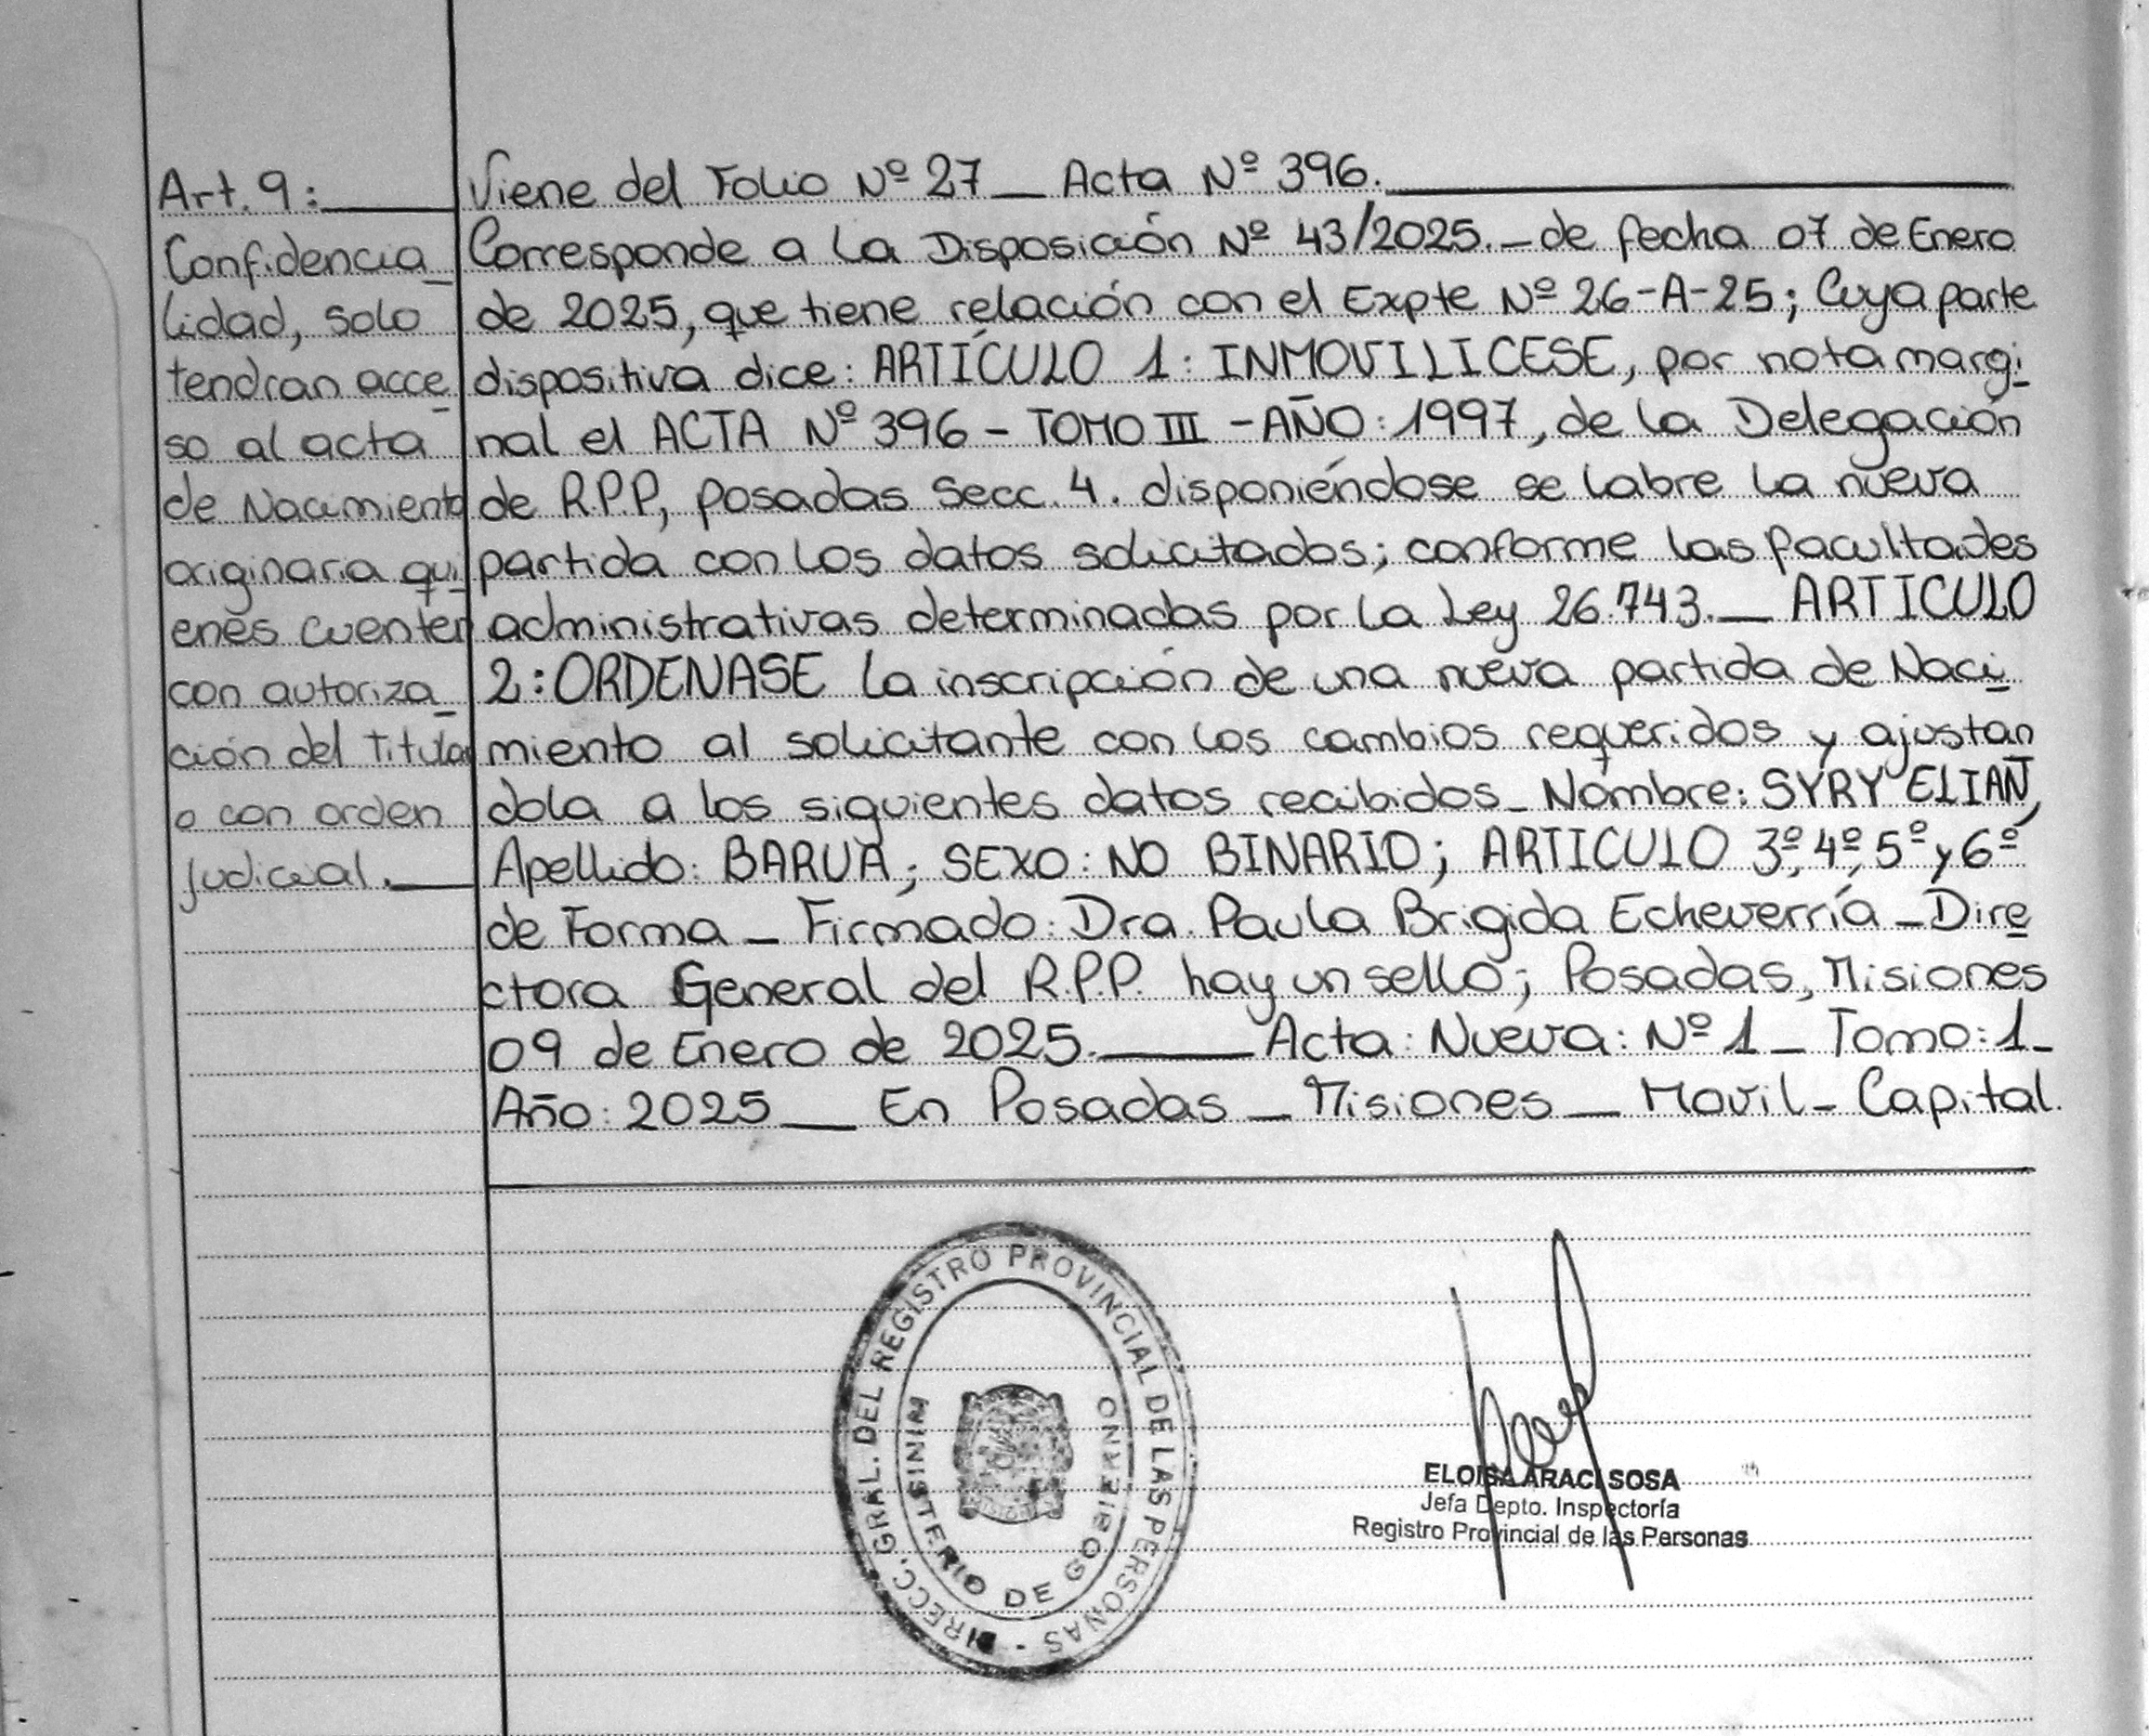 Art. 9:
Confidencia_
lidad, solo
tendran acce_
so al acta
de Nacimiento
originaria qui_
enes cuenten
con autoriza_
ción del Titular
o con orden
judicial.
Viene del Folio Nº 27 _ Acta Nº 396.
Corresponde a la Disposición Nº 43/2025._ de fecha 07 de Enero
de 2025, que tiene relación con el Expte Nº 26-A-25; Cuya parte
dispositiva dice: ARTÍCULO 1: INMOVILICESE, por nota margi_
nal el ACTA Nº 396 - TOMO III - AÑO: 1997, de la Delegación
de R.P.P, Posadas Secc. 4. disponiéndose se labre la nueva
partida con los datos solicitados; conforme las facultades
administrativas determinadas por la Ley 26.743._ ARTICULO
2: ORDENASE la inscripción de una nueva partida de Naci_
miento al solicitante con los cambios requeridos y ajustan
dola a los siguientes datos recibidos_ Nombre: SYRY ELIAN,
Apellido: BARUA; SEXO: NO BINARIO; ARTICULO 3º, 4º, 5º y 6º
de Forma _ Firmado: Dra. Paula Brigida Echeverría _ Dire_
ctora General del R.P.P. hay un sello; Posadas, Misiones
09 de Enero de 2025. Acta: Nueva: Nº 1 _ Tomo: 1_
Año: 2025 _ En Posadas _ Misiones _ Movil _ Capital.
DIRECC. GRAL. DEL REGISTRO PROVINCIAL DE LAS PERSONAS -
MINISTERIO DE GOBIERNO
ELOISA ARACI SOSA
Jefa Depto. Inspectoría
Registro Provincial de las Personas